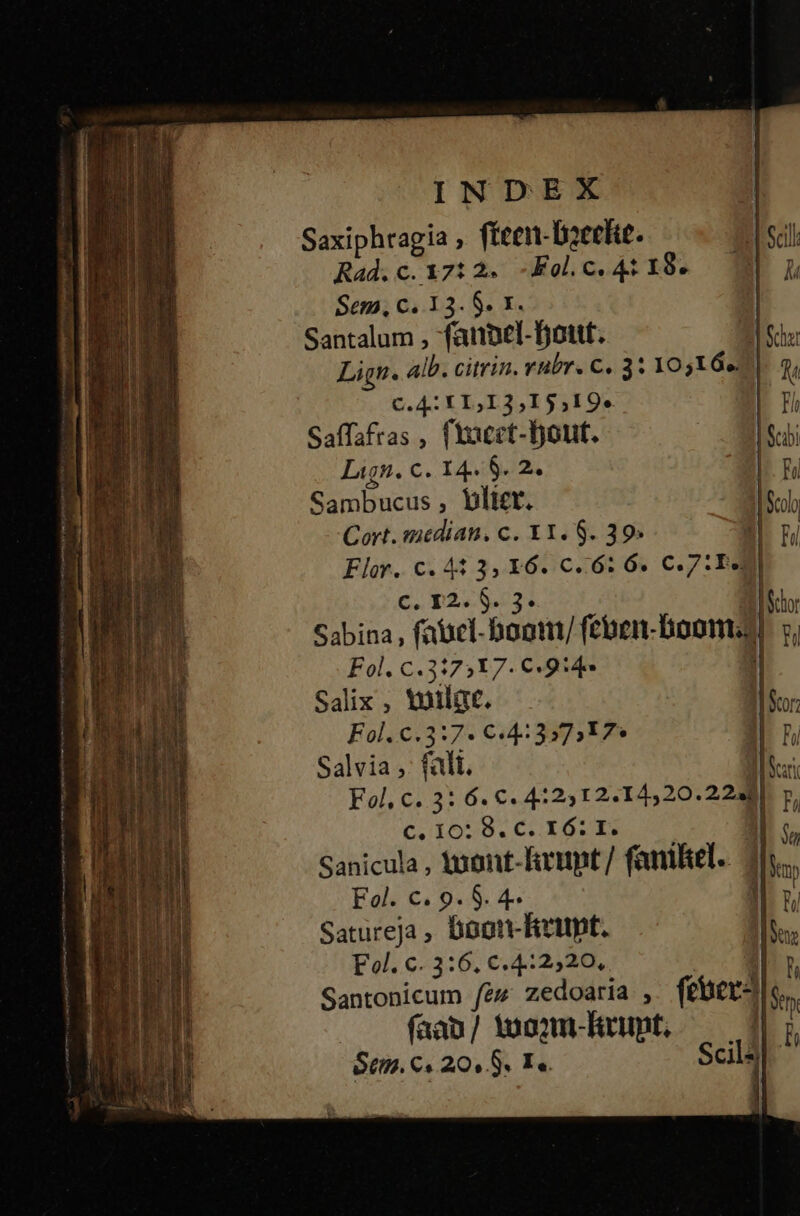 INDEX
Saxiphragia, ſteen-bꝛeeke.
Rad. c. 17: 2. Fol. c. 4: 18.
Sem. c. 13. §. 1.
Santalum, ſandel-hout.
Lign. alb. citrin. rubr. c. 3: 10,16.
c.4: 11,13,15,19.
Saſſafras, ſweet-hout.
Lign. c. 14. §. 2.
Sambucus, vlier.
Cort. median. c. 11. §. 39.
Flor. c. 4: 3, 16. c. 6: 6. c.7:1.
c. 12. §. 3.
Sabina, ſavel-boom/ ſeven-boom.
Fol. c.3:7,17. c.9:4.
Salix, wilge.
Fol. c.3:7. c.4:3,7,17.
Salvia, ſali.
Fol. c. 3: 6. c. 4:2,12.14,20.22.
c. 10: 8. c. 16: 1.
Sanicula, wont-kruyt/ ſanikel.
Fol. c. 9. §. 4.
Satureja, boon-kruyt.
Fol. c. 3:6. c.4:2,20.
Santonicum ſeu zedoaria, ſever-
ſaad/ woꝛm-kruyt.
Sem. c. 20. §. 1.
Scil-